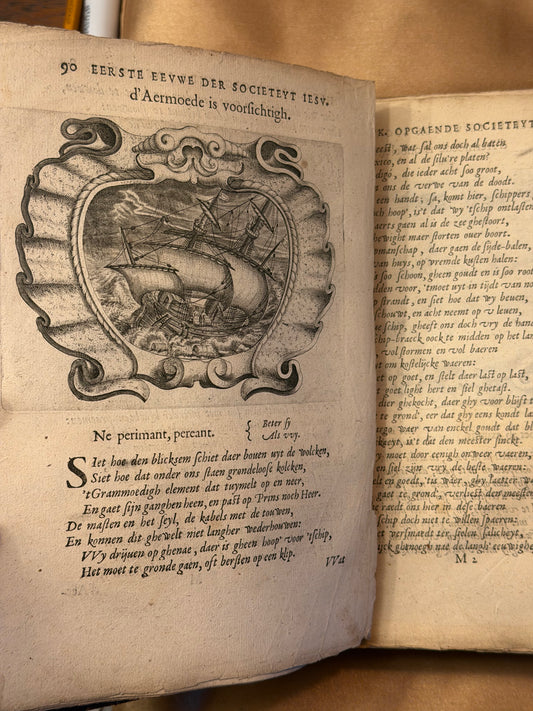 90 EERSTE EEVWE DER SOCIETEYT IESV.
d'Aermoede is voorsichtigh.
Ne perimant, pereant.
Beter sy
Als vvy.
SIet hoe den blicksem schiet daer bouen uyt de wolcken,
Siet hoe dat onder ons staen grondeloose kolcken,
'tGrammoedigh element dat tuymelt op en neer,
En gaet sijn ganghen heen, en past op Prins noch Heer.
De masten en het seyl, de kabels met de touwen,
En konnen dit ghewelt niet langher wederhouwen:
VVy drijuen op ghenae, daer is gheen hoop voor 'tschip,
Het moet te gronde gaen, oft bersten op een klip.
VVat
K. OPGAENDE SOCIETEYT
wat sal ons doch al baten
en al de silu're platen?
die ieder acht soo groot,
ons de verwe van de doodt.
een handt; sa, komt hier, schippers
hoop', is't dat wy 'tschip ontlasten
aerts gaen al is de zee ghestoort,
maer storten ouer boort.
daer gaen de sijde-balen,
van huys, op vremde kusten halen:
is soo schoon, gheen goudt en is soo root
voor, 'tmoet uyt in tijdt van noot
strandt, en siet hoe dat wy beuen,
en acht neemt op v leuen,
schip, gheeft ons doch vry de handt
oock te midden op het land
vol stormen ende vol baeren
en kostelijcke waeren:
op goet, en stelt daer last op last,
goet light hert en siel ghetast.
dier ghekocht, daer ghy voor blijft
te grond', eer dat ghy eens kondt
waer van enckel goudt dat
is't dat den meester sinckt.
sijn vry de beste waeren:
en goedt, 'tis
gaet te grond', verliest den meester
raedt ons hier in dese baeren
schip doch niet te willen spaeren:
te sielen salicheyt,
M 2